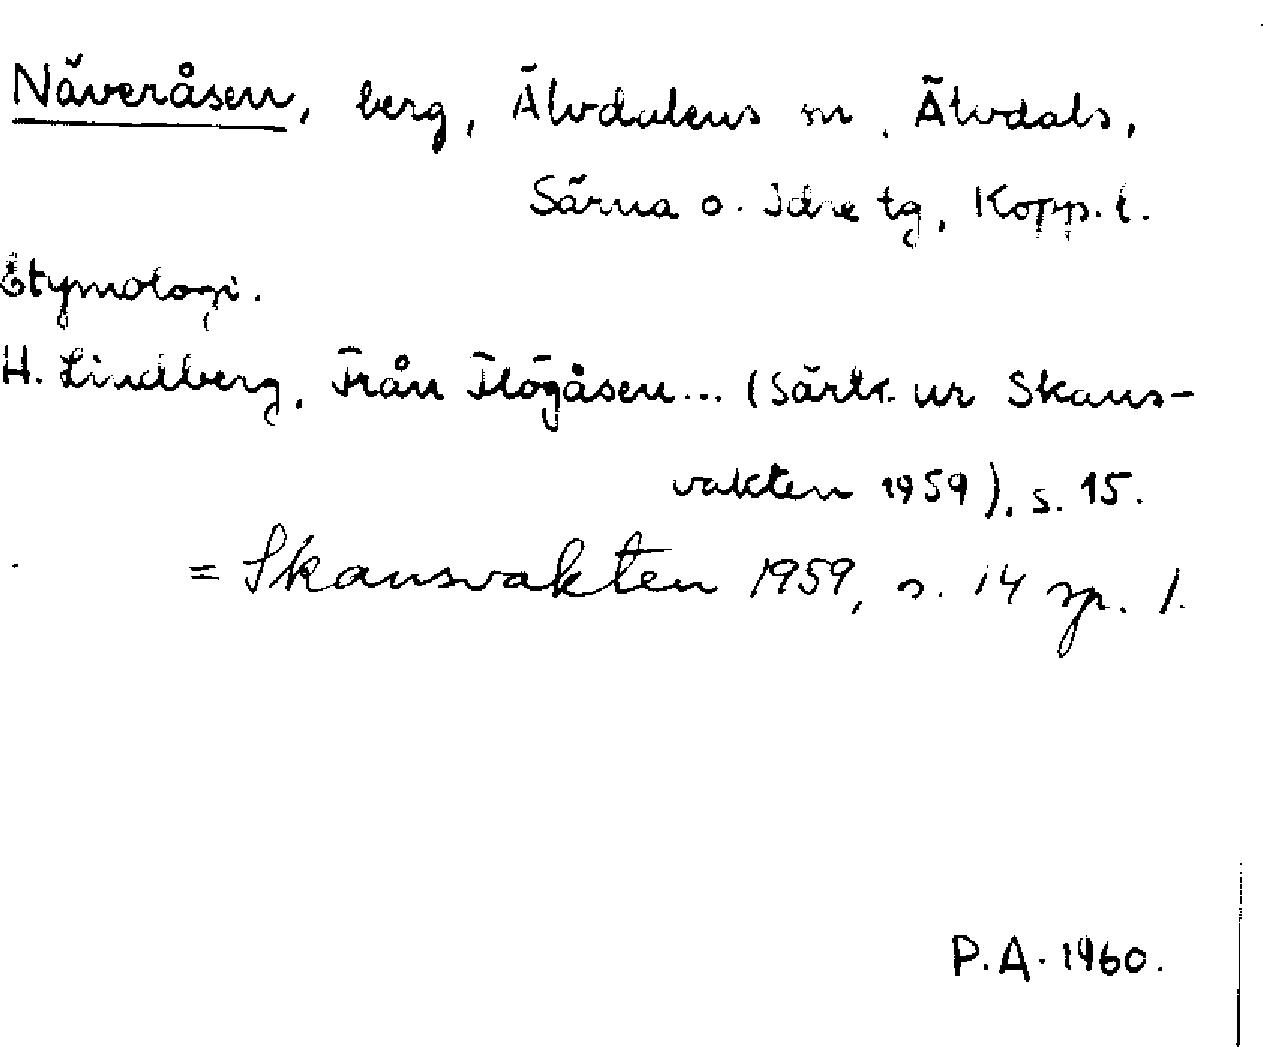 Näveråsen, berg, Älvdalens sn, Älvdals,
Särna o. Idre tg, Kopp. l.
Etymologi.
H. Lindberg, Från Flögåsen... (Särtr. ur Skans-
vakten 1959), s. 15.
= Skansvakten 1959, s. 14 sp. 1.
P.A. 1960.